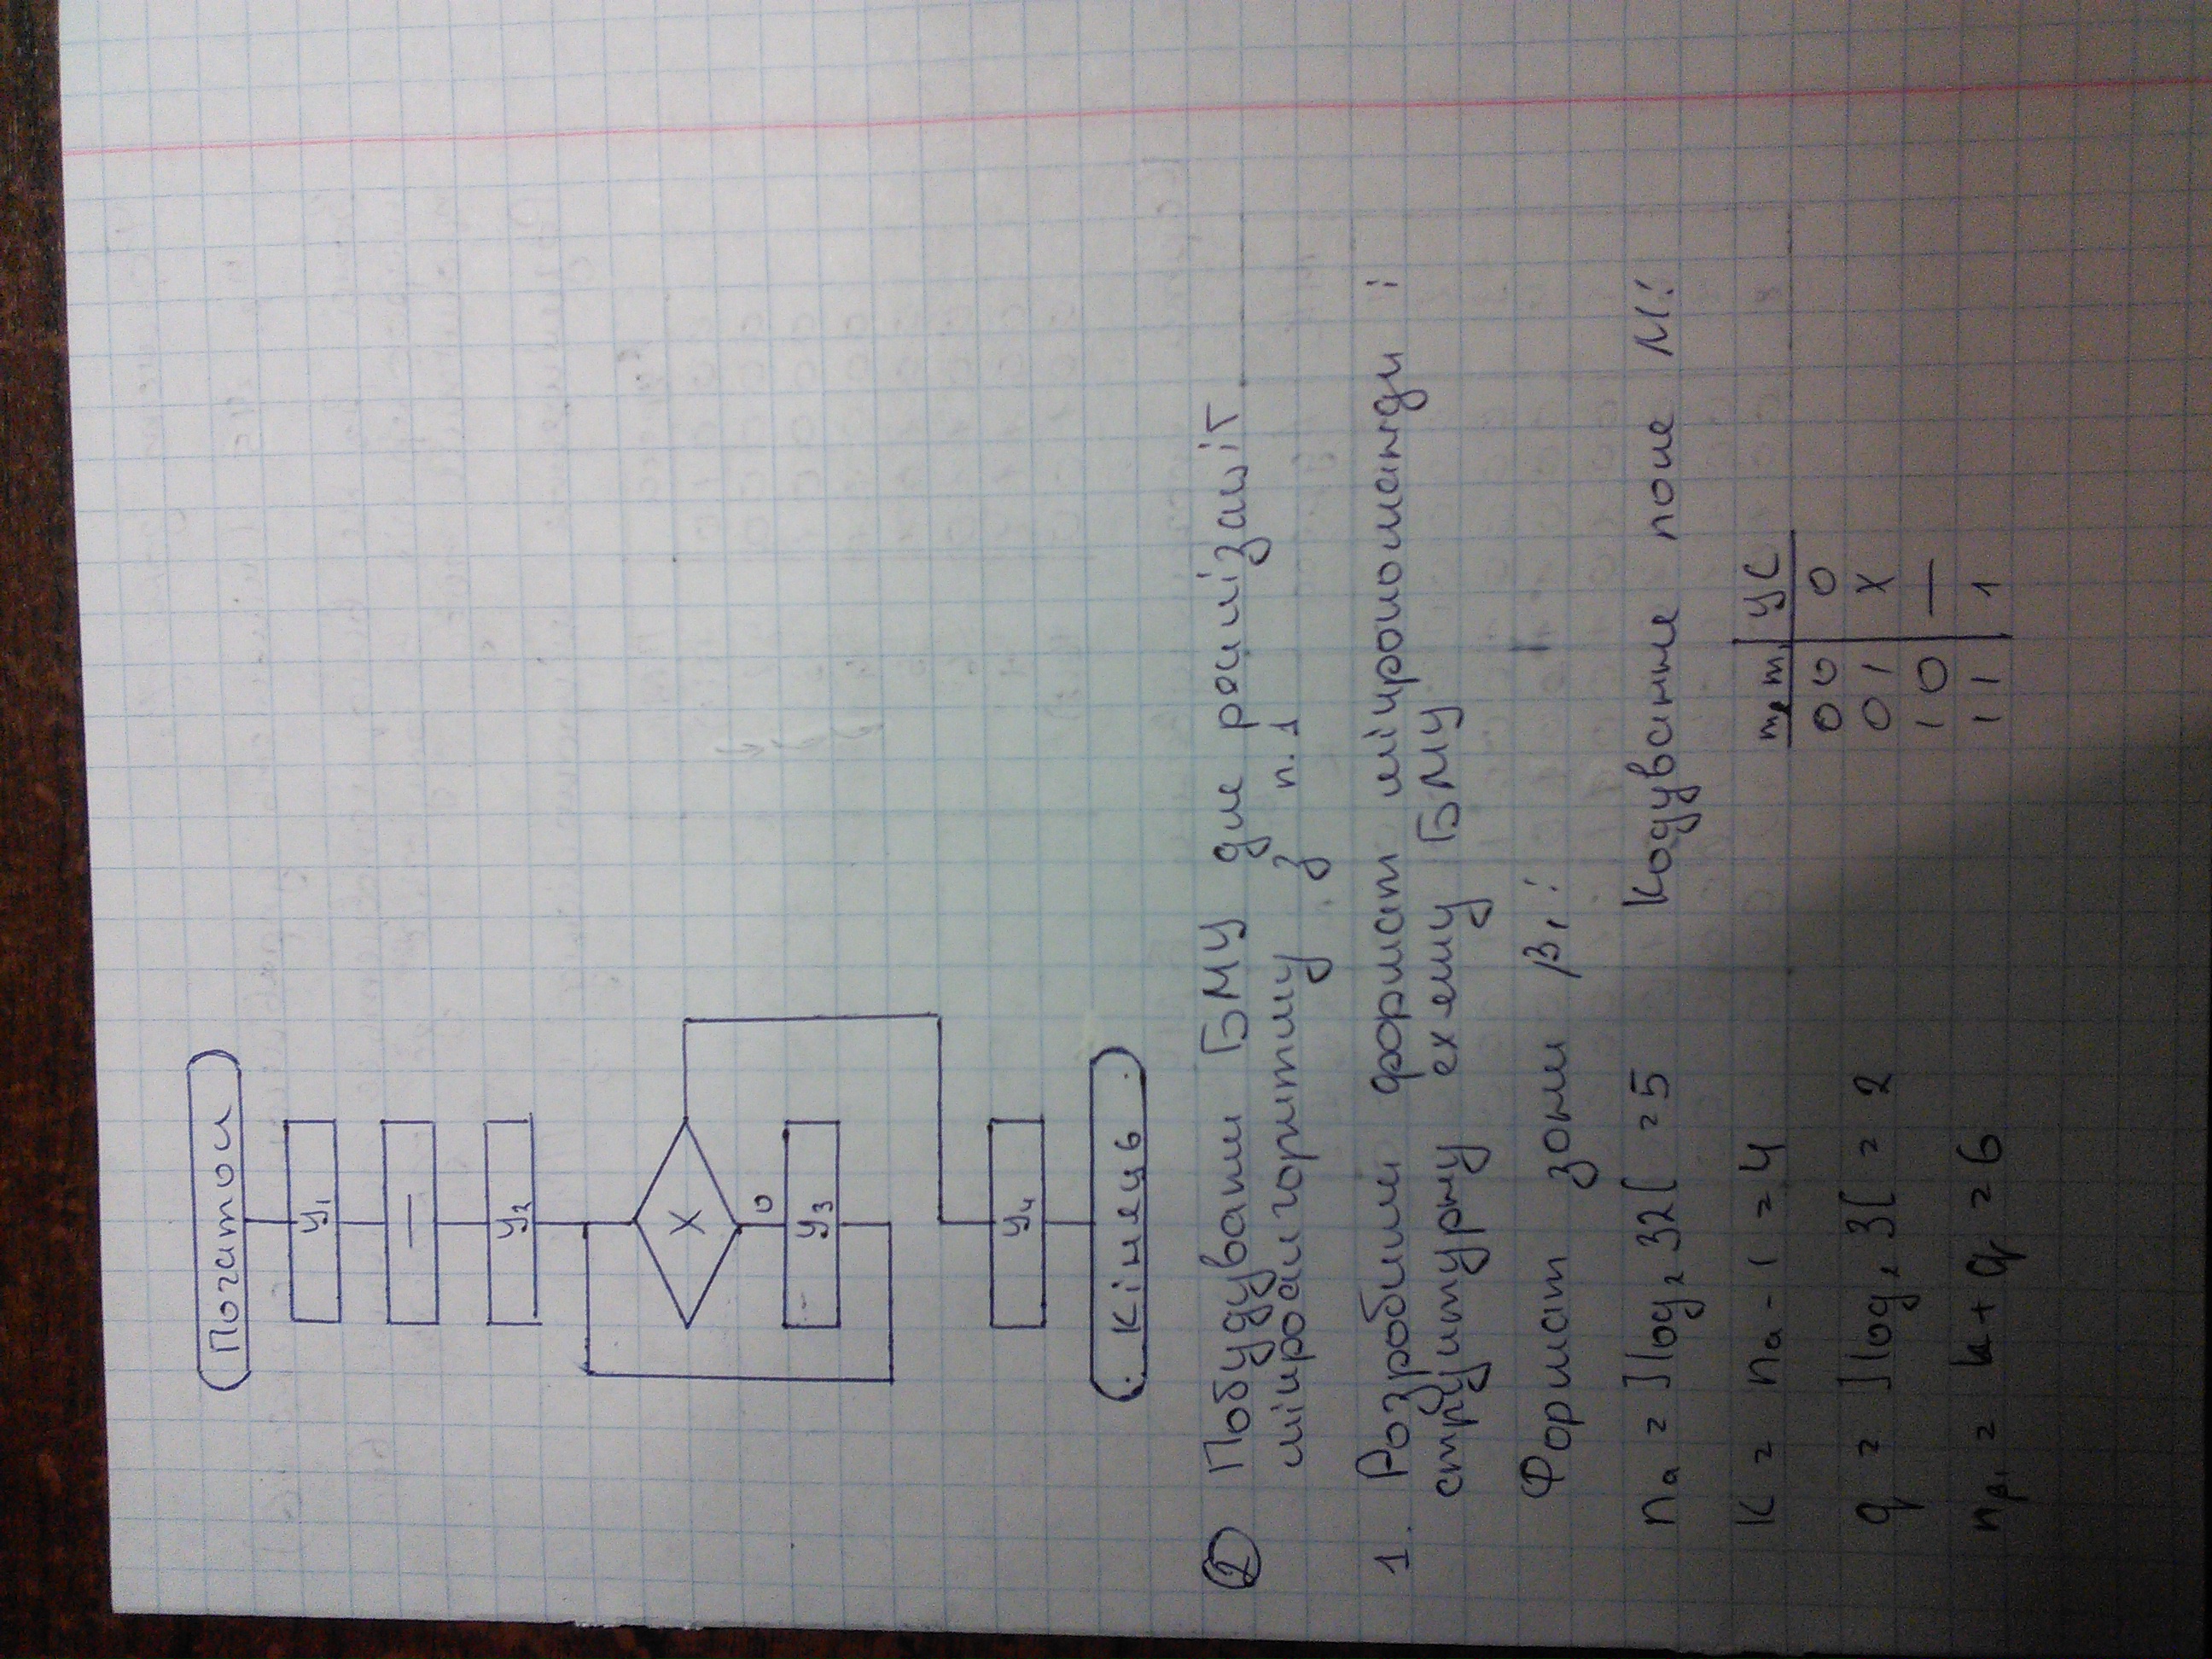 Початок
y₁
—
y₂
X
0
y₃
y₄
Кінець
② Побудувати БМУ для реалізації
мікроалгоритму з п.1
1. Розробили формат мікрокоманди і
структурну схему БМУ
Формат зони β₁:
nₐ = ]log₂ 32[ = 5 Кодування поле M:
K = nₐ - 1 = 4
m₂ m₁ | УС
00 | 0
01 | X
10 | —
11 | 1
q = ]log₂ 3[ = 2
nβ₁ = k + q = 6